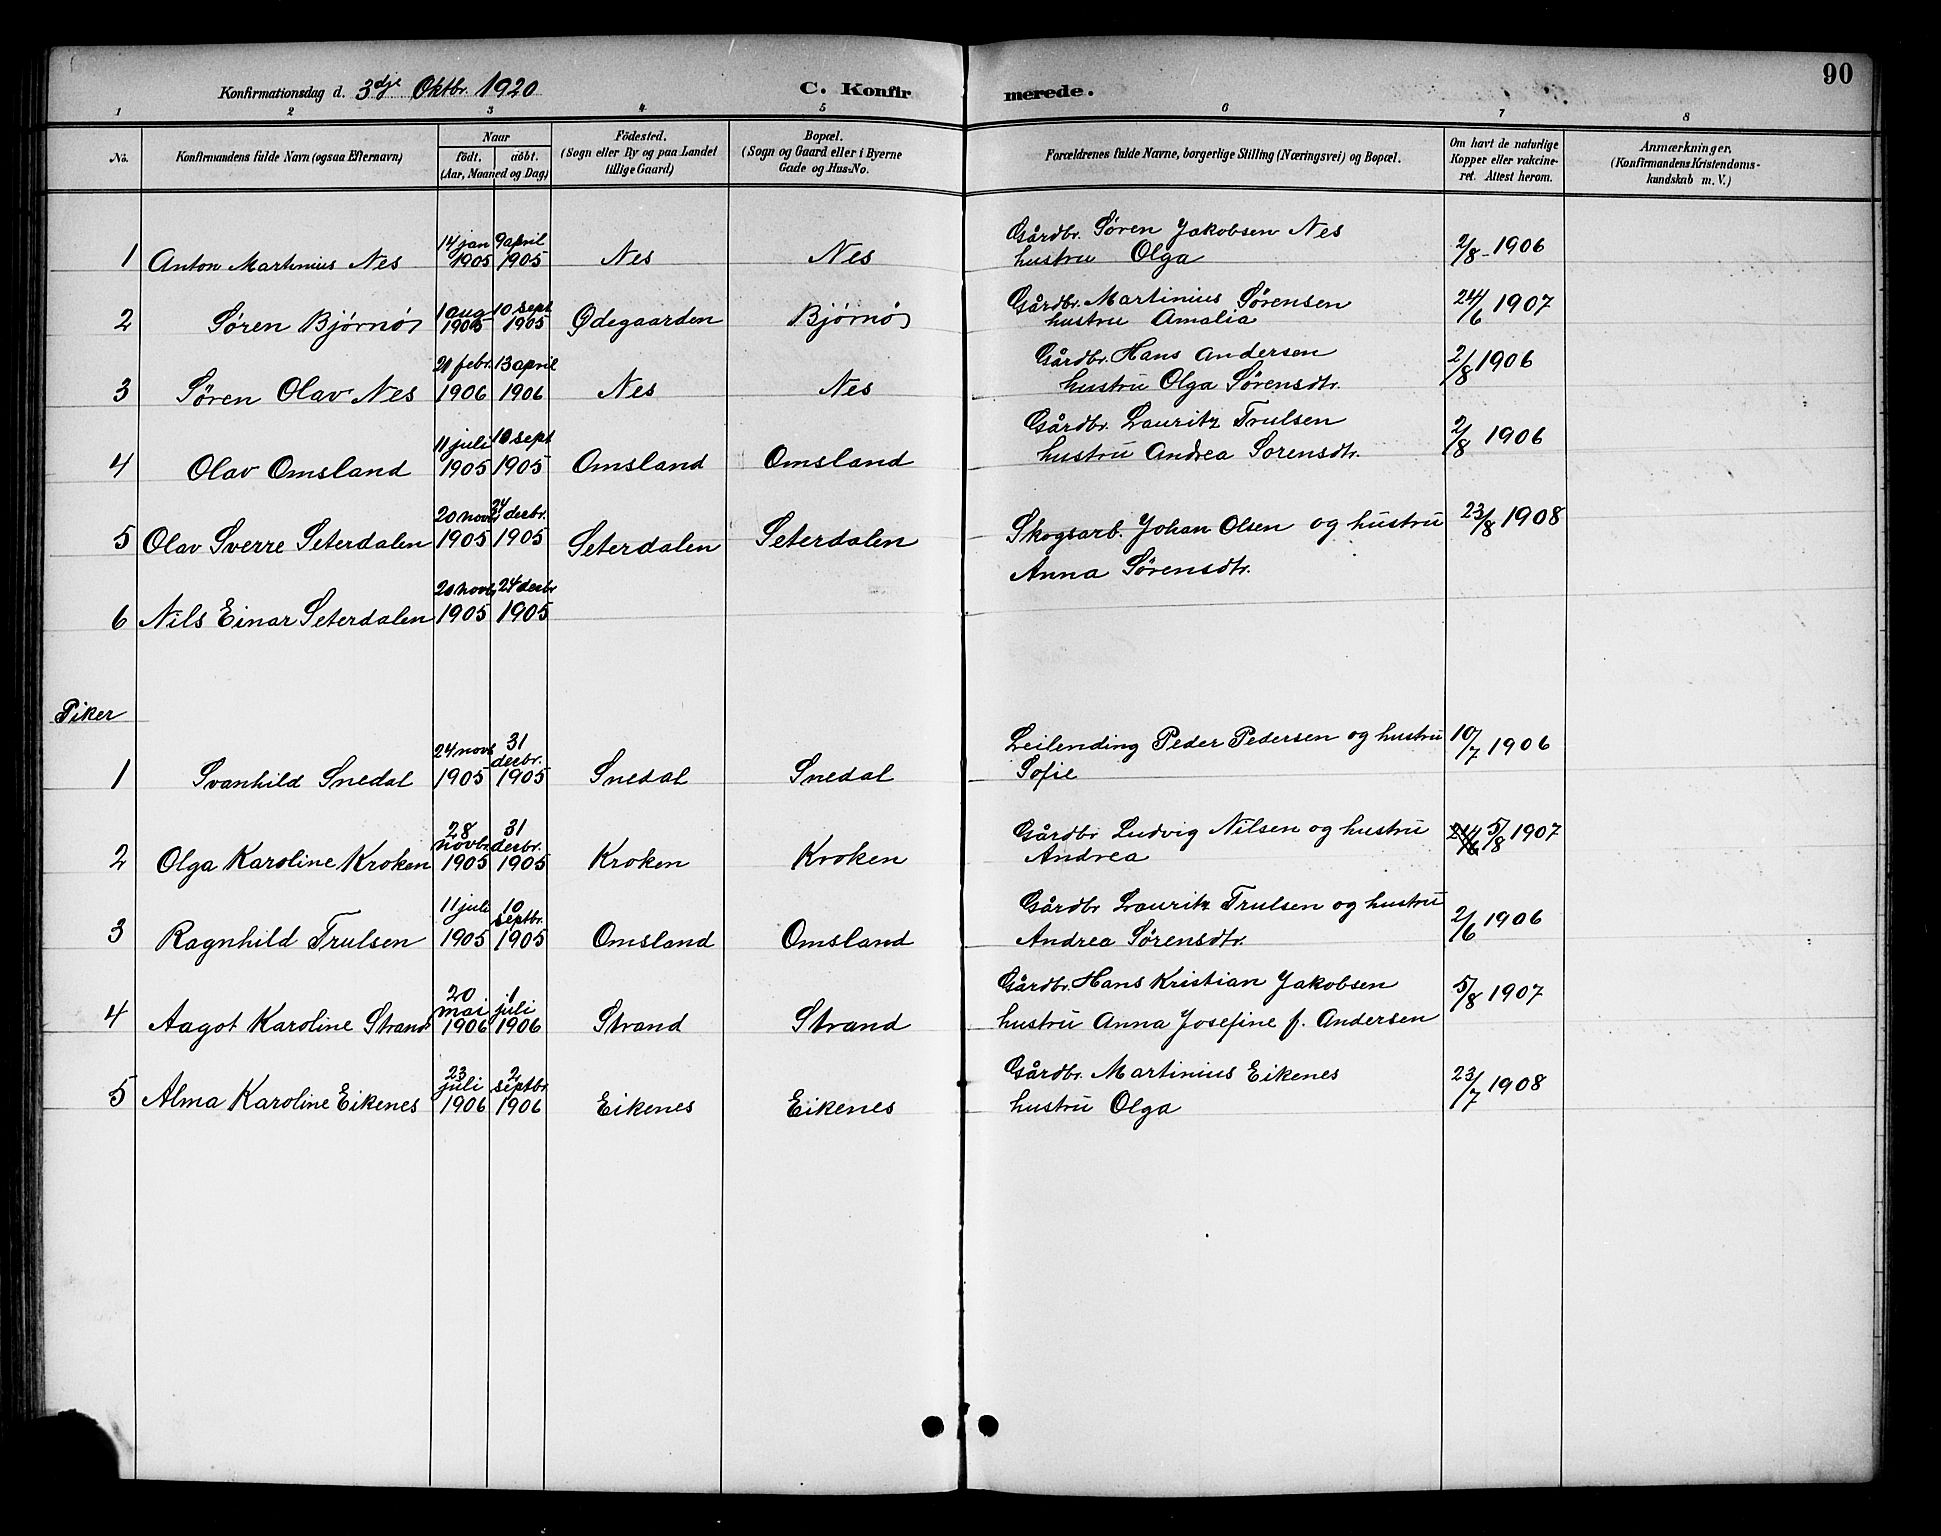 Konfirmationsdag d. 3dje Oktbr. 1920
C. Konfirmerede.
90
1 2 3 4 5 6 7 8
No.
Konfirmandens fulde Navn (ogsaa Efternavn)
Naar
født. døbt.
(Aar, Maaned og Dag)
Födested.
(Sogn eller By og paa Landet
tillige Gaard)
Bopæl.
(Sogn og Gaard eller i Byerne
Gade og Hus-No.
Forældrenes fulde Navne, borgerlige Stilling (Næringsvei) og Bopæl.
Om havt de naturlige
Kopper eller vakcine-
ret. Attest herom.
Anmærkninger.
(Konfirmandens Kristendoms-
kundskab m. V.)
1 Anton Martinius Nes 14 jan 1905 9 april 1905 Nes Nes Gårdbr. Søren Jakobsen Nes
hustru Olga 2/8-1906
2 Søren Bjørnø 1 aug 1905 10 sept 1905 Ødegaarden Bjørnø Gårdbr. Martinius Sørensen
hustru Amalia 24/6 1907
3 Søren Olav Nes 21 febr. 1906 13 april 1906 Nes Nes Gårdbr. Hans Andersen
hustru Olga Sørensdtr. 2/8 1906
4 Olav Omsland 11 juli 1905 10 sept 1905 Omsland Omsland Gårdbr. Lauritz Trulsen
hustru Andrea Sorensdtr. 2/8 1906
5 Olav Sverre Seterdalen 20 novbr 1905 24 desbr. 1905 Seterdalen Seterdalen Skogsarb. Johan Olsen og hustru
Anna Sørensdtr. 23/8 1908
6 Nils Einar Seterdalen 20 novb. 1905 24 desbr 1905
Piker
1 Svanhild Snedal 24 novb 1905 31 desbr. 1905 Snedal Snedal Leilending Peder Pedersen og hustru
Sofie 10/7 1906
2 Olga Karoline Kroken 28 novbr. 1905 31 desbr. 1905 Kroken Kroken Gårdbr Ludvig Nilsen og hustru
Andrea 24/6 5/8 1907
3 Ragnhild Trulsen 11 juli 1905 10 septbr. 1905 Omsland Omsland Gårdbr Lauritz Trulsen og hustru
Andrea Sørensdtr. 2/6 1906
4 Aagot Karoline Strand 20 mai 1906 1 juli 1906 Strand Strand Gårdbr. Hans Kristian Jakobsen
hustru Anna Josefine f. Andersen 5/8 1907
5 Alma Karoline Eikenes 23 juli 1906 2 septbr. 1906 Eikenes Eikenes Gårdbr. Martinius Eikenes
hustru Olga 23/7 1908